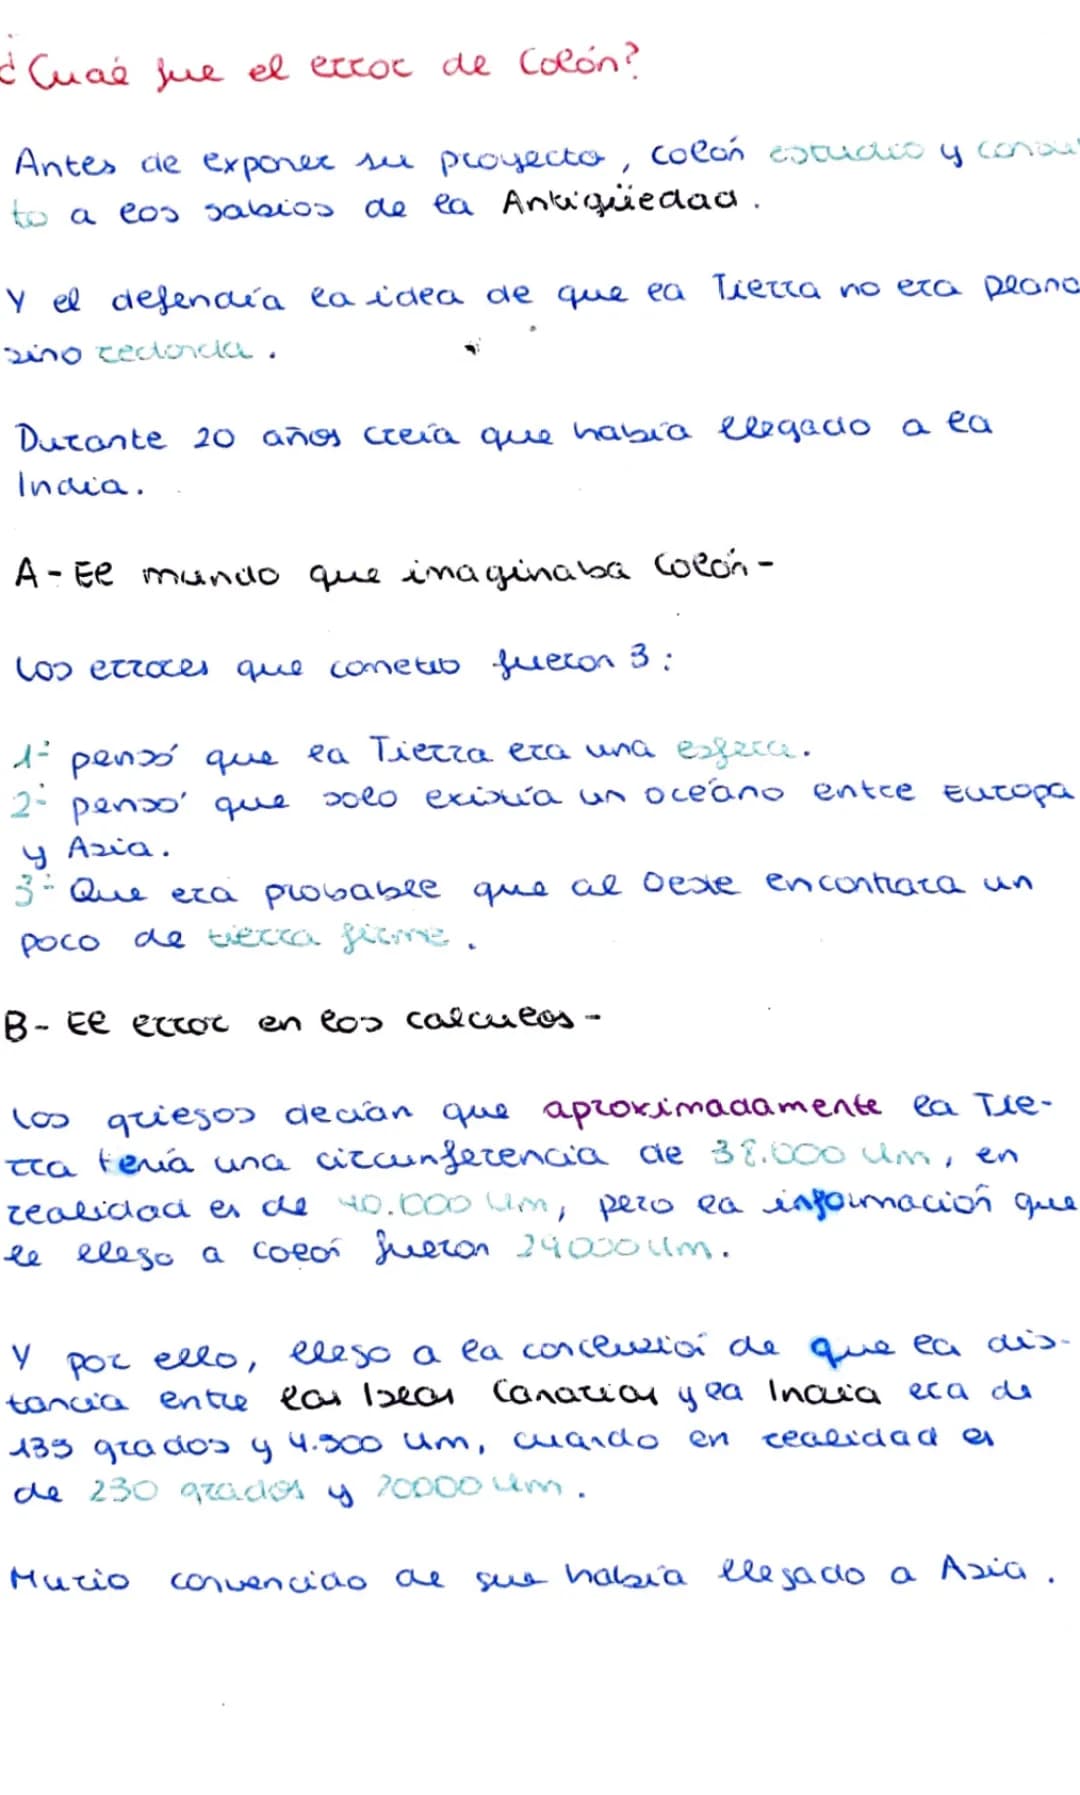 ¿Cuál fue el error de Colón?
Antes de exponer su proyecto, Colón estudio y consul
to a los sabios de la Antigüedad.
Y el defendía la idea de que la Tierra no era plana
sino redonda.
Durante 20 años creía que había llegado a la
India.
A- El mundo que imaginaba Colón-
Los errores que cometio fueron 3:
1º pensó que la Tierra era una esfera.
2º pensó que solo existía un océano entre Europa
y Asia.
3º Que era probable que al Oeste encontrara un
poco de tierra firme.
B- El error en los calculos-
Los griegos decían que aproximadamente la Tie-
rra tenía una circunferencia de 38.000 Km, en
realidad es de 40.000 Km, pero la información que
le llego a Colón fueron 29000 Km.
Y por ello, llego a la conclusión de que la dis-
tancia entre las Islas Canarias y la India era de
135 grados y 4.500 Km, cuando en realidad es
de 230 grados y 20000 Km.
Murio convencido de que había llegado a Asia.